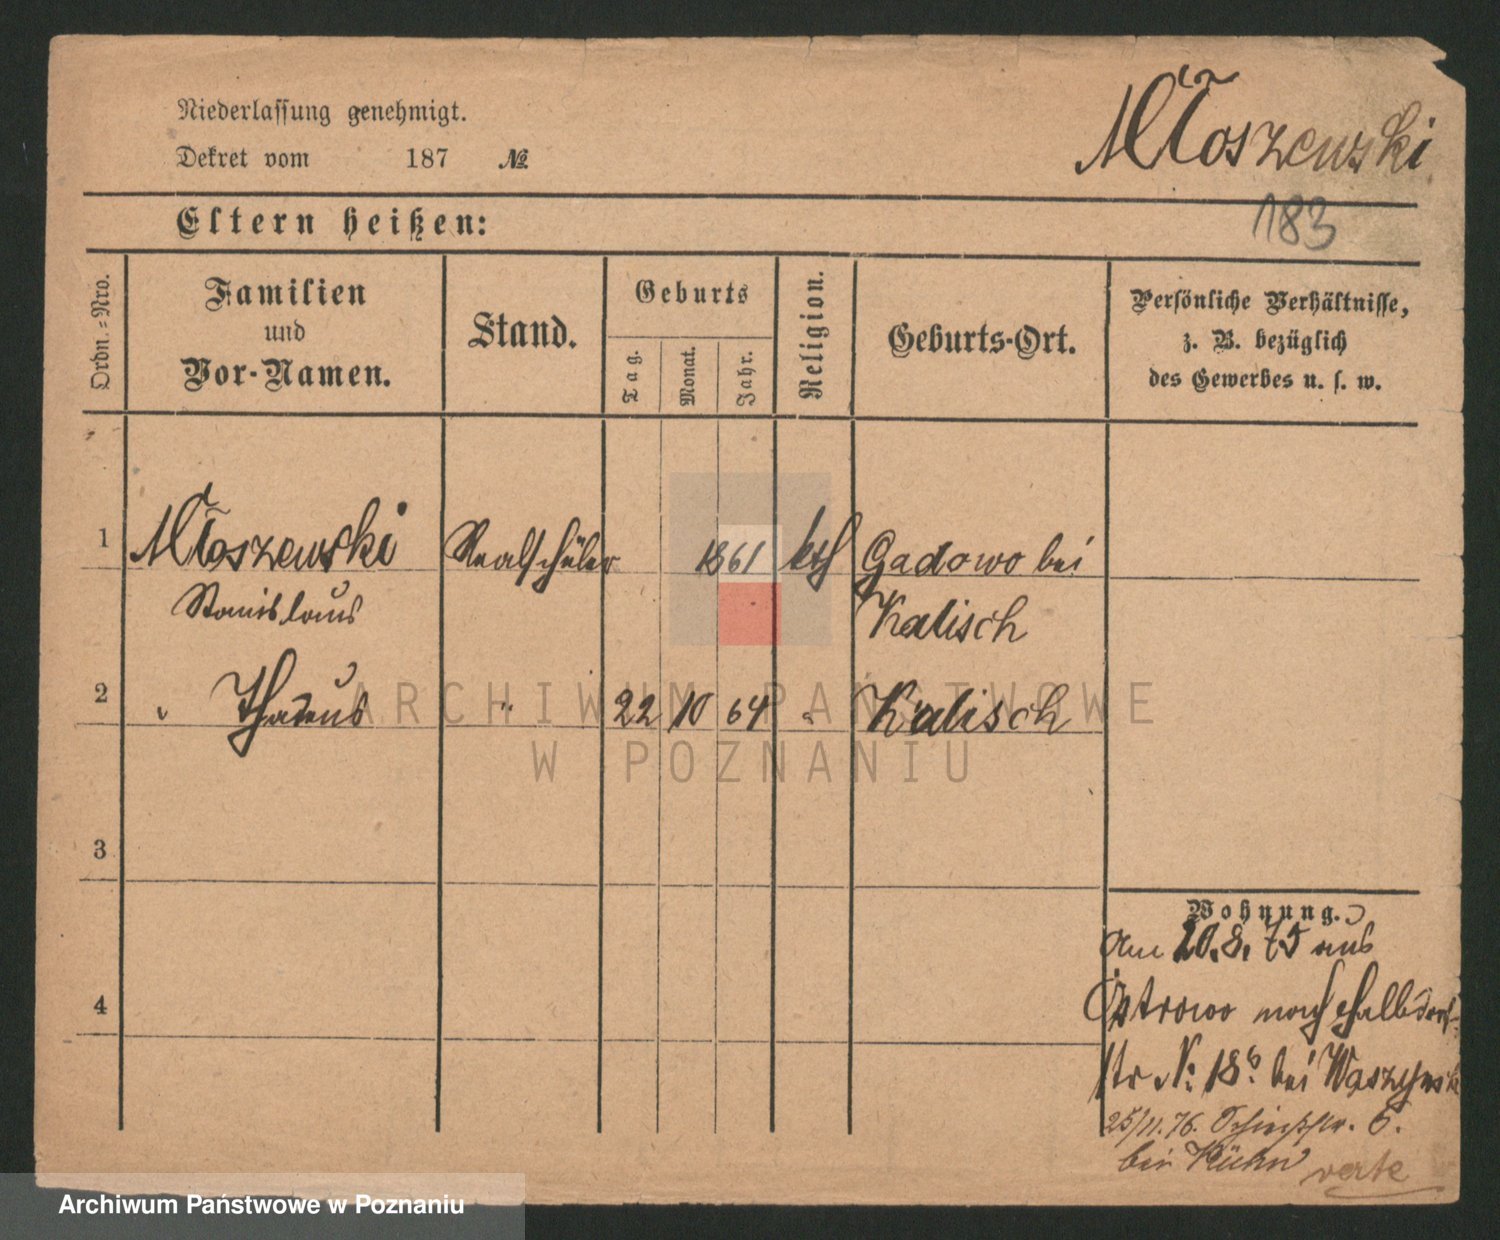 Niederlassung genehmigt.
Dekret vom 187 №
Młoszewski
183
Eltern heißen:
Ordn.-Nro.
Familien
und
Vor-Namen.
Stand.
Geburts
Tag.
Monat.
Jahr.
Religion.
Geburts-Ort.
Persönliche Verhältnisse,
z. B. bezüglich
des Gewerbes u. s. w.
1 Młoszewski Realschüler 1861 kth Gadowo bei
Stanislaus Kalisch
2 " Thadeus " 22 10 64 " Kalisch
3
4
Wohnung.
Am 20.8.75 aus
Ostrowo nach Halbdorf-
str No 18b. bei Waszynsk
25/11.76. Schießstr. 6.
bei Kühn verte
ARCHIWUM PAŃSTWOWE
W POZNANIU
Archiwum Państwowe w Poznaniu